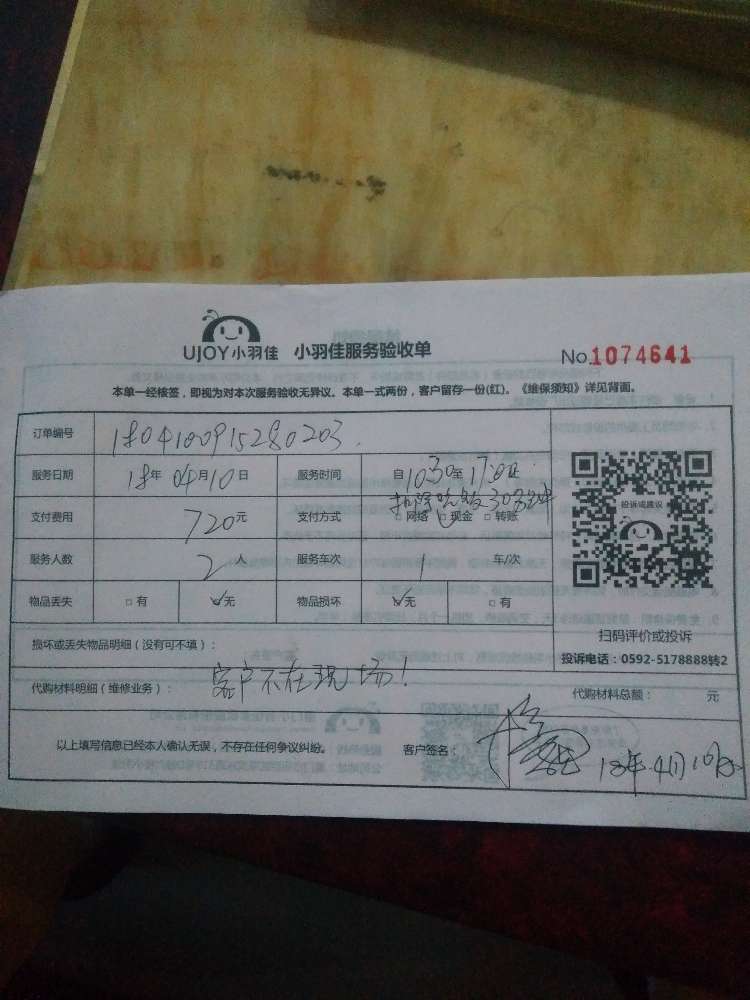 UJOY小羽佳 小羽佳服务验收单 No.1074641
本单一经核签，即视为对本次服务验收无异议。本单一式两份，客户留存一份(红)。《维保须知》详见背面。
订单编号 1804100915280203
服务日期 18年 04月10日 服务时间 自1030至17
扣除吃饭30分钟
支付费用 720元 支付方式 □网络 □现金 □转账
投诉或建议
服务人数 2人 服务车次 1 车/次
物品丢失 □有 ☑无 物品损坏 ☑无 □有
扫码评价或投诉
损坏或丢失物品明细（没有可不填）：
投诉电话：0592-5178888转2
代购材料明细（维修业务）： 客户不在现场！ 代购材料总额： 元
以上填写信息已经本人确认无误，不存在任何争议纠纷。 客户签名： 18年4月10日